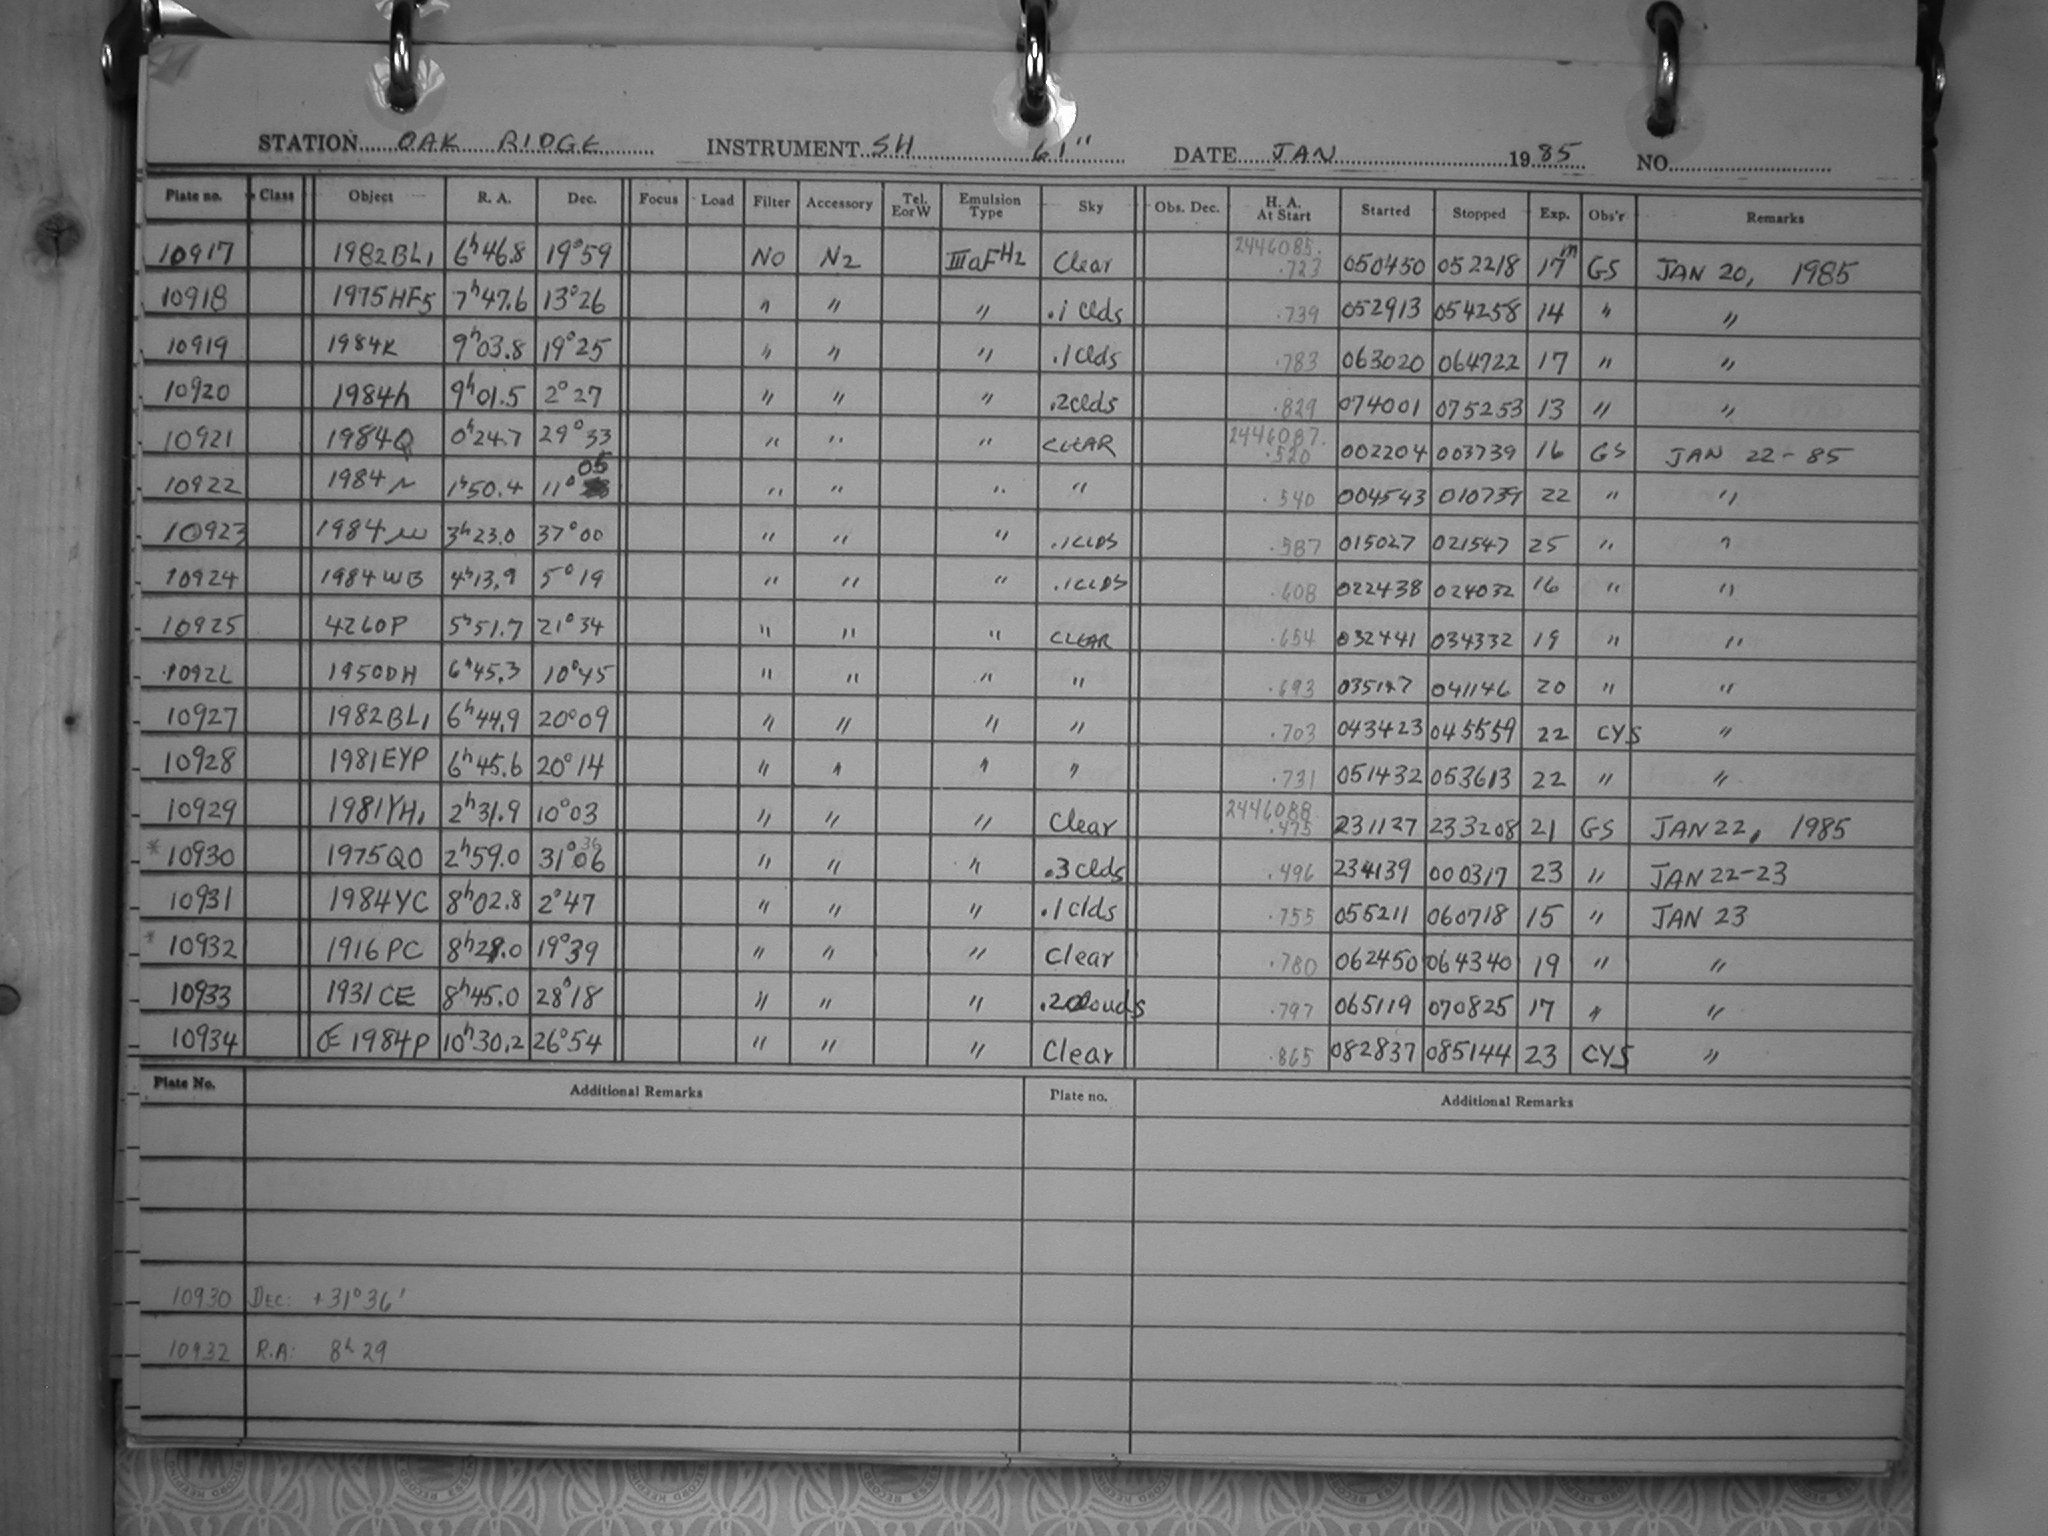 STATION OAK RIDGE INSTRUMENT SH 61" DATE JAN 1985 NO.
Plate no. Class Object R. A. Dec. Focus Load Filter Accessory Tel. E or W Emulsion Type Sky Obs. Dec. H. A. At Start Started Stopped Exp. Obs'r Remarks
10917 1982BL1 6h46.8 19°59 NO N2 IIIaFH2 Clear 2446085. .723 050450 052218 17m GS JAN 20, 1985
10918 1975HF5 7h47.6 13°26 " " " .1 Clds .739 052913 054258 14 " "
10919 1984K 9h03.8 19°25 " " " .1 Clds .783 063020 064722 17 " "
10920 1984h 9h01.5 2°27 " " " .2 clds .829 074001 075253 13 " "
10921 1984Q 0h24.7 29°33 " " " CLEAR 2446087. .520 002204 003739 16 GS JAN 22-85
10922 1984 1h50.4 11°05 " " " " .540 004543 010739 22 " "
10923 1984 3h23.0 37°00 " " " .1 CLDS .587 015027 021547 25 " "
10924 1984WB 4h13.9 5°19 " " " .1 CLDS .608 022438 024032 16 " "
10925 4260P 5h51.7 21°34 " " " CLEAR .654 032441 034332 19 " "
10926 1950DH 6h45.3 10°45 " " " " .693 035147 041146 20 " "
10927 1982BL1 6h44.9 20°09 " " " " .703 043423 045559 22 CYS "
10928 1981EYP 6h45.6 20°14 " " " " .731 051432 053613 22 " "
10929 1981YH1 2h31.9 10°03 " " " Clear 2446088 .475 231127 233208 21 GS JAN 22, 1985
* 10930 1975QO 2h59.0 31°06 36 " " " .3 Clds .496 234139 000317 23 " JAN 22-23
10931 1984YC 8h02.8 2°47 " " " .1 Clds .755 055211 060718 15 " JAN 23
* 10932 1916PC 8h29.0 19°39 " " " Clear .780 062450 064340 19 " "
10933 1931CE 8h45.0 28°18 " " " .2 Clouds .797 065119 070825 17 " "
10934 1984P 10h30.2 26°54 " " " Clear .865 082837 085144 23 CYS "
Plate No. Additional Remarks Plate no. Additional Remarks
10930 DEC: +31°36'
10932 R.A: 8h 29